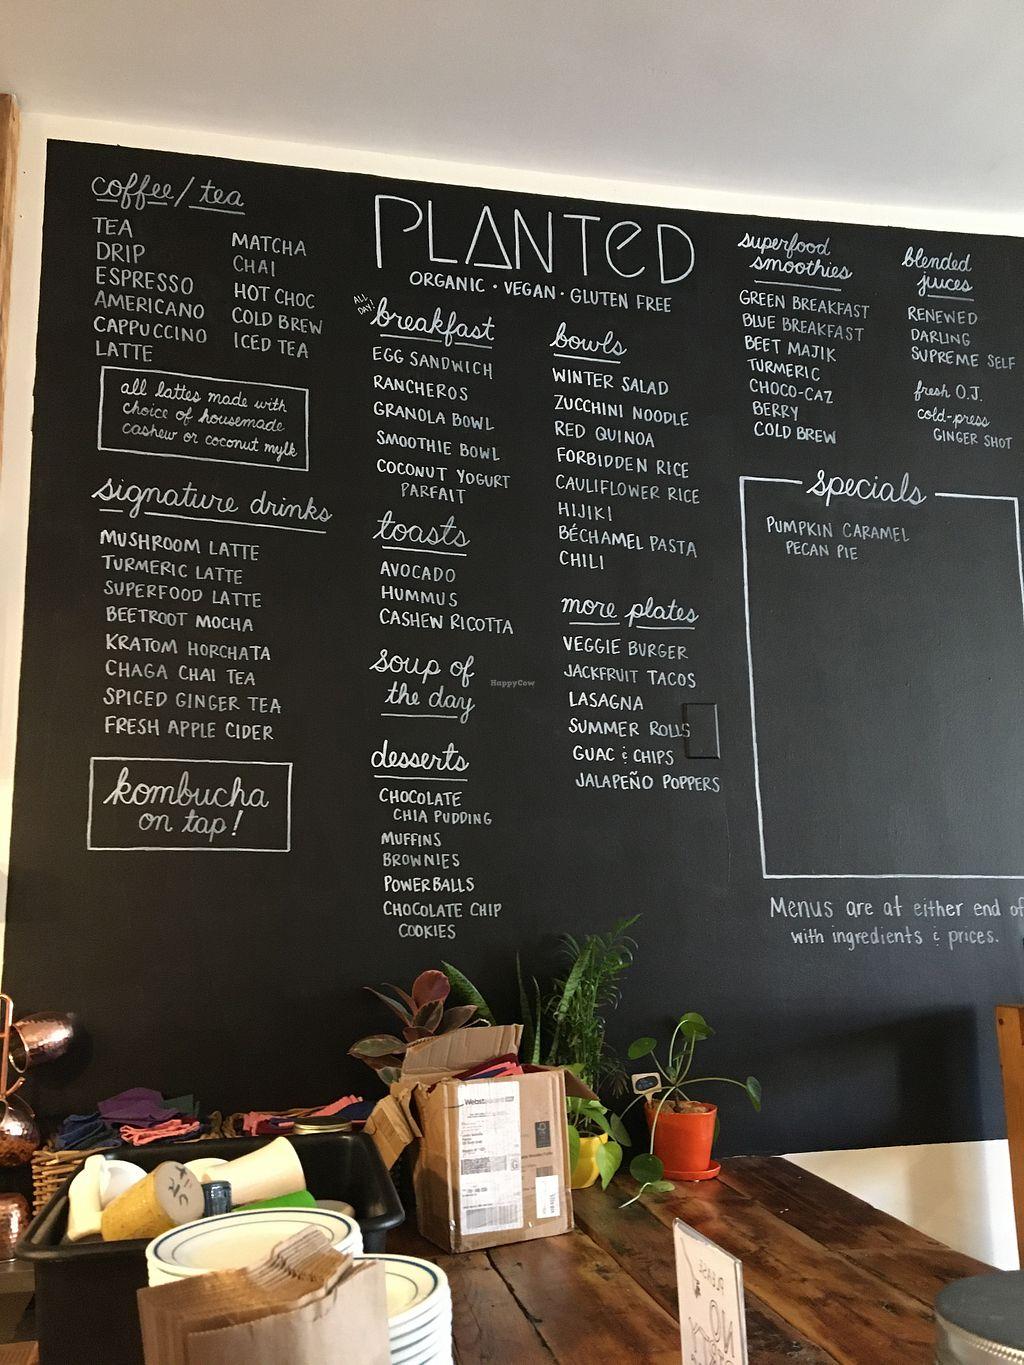 coffee/tea
TEA
DRIP
ESPRESSO
AMERICANO
CAPPUCCINO
LATTE
MATCHA
CHAI
HOT CHOC
COLD BREW
ICED TEA
all lattes made with
choice of housemade
cashew or coconut mylk
signature drinks
MUSHROOM LATTE
TURMERIC LATTE
SUPERFOOD LATTE
BEETROOT MOCHA
KRATOM HORCHATA
CHAGA CHAI TEA
SPICED GINGER TEA
FRESH APPLE CIDER
kombucha
on tap!
PLANTED
ORGANIC · VEGAN · GLUTEN FREE
ALL
DAY!
breakfast
EGG SANDWICH
RANCHEROS
GRANOLA BOWL
SMOOTHIE BOWL
COCONUT YOGURT
PARFAIT
toasts
AVOCADO
HUMMUS
CASHEW RICOTTA
soup of
the day
desserts
CHOCOLATE
CHIA PUDDING
MUFFINS
BROWNIES
POWERBALLS
CHOCOLATE CHIP
COOKIES
bowls
WINTER SALAD
ZUCCHINI NOODLE
RED QUINOA
FORBIDDEN RICE
CAULIFLOWER RICE
HIJIKI
BÉCHAMEL PASTA
CHILI
more plates
VEGGIE BURGER
JACKFRUIT TACOS
LASAGNA
SUMMER ROLLS
GUAC & CHIPS
JALAPEÑO POPPERS
HappyCow
superfood
smoothies
GREEN BREAKFAST
BLUE BREAKFAST
BEET MAJIK
TURMERIC
CHOCO-CAZ
BERRY
COLD BREW
blended
juices
RENEWED
DARLING
SUPREME SELF
fresh O.J.
cold-press
GINGER SHOT
specials
PUMPKIN CARAMEL
PECAN PIE
Menus are at either end of
with ingredients & prices.
PLEASE
NO